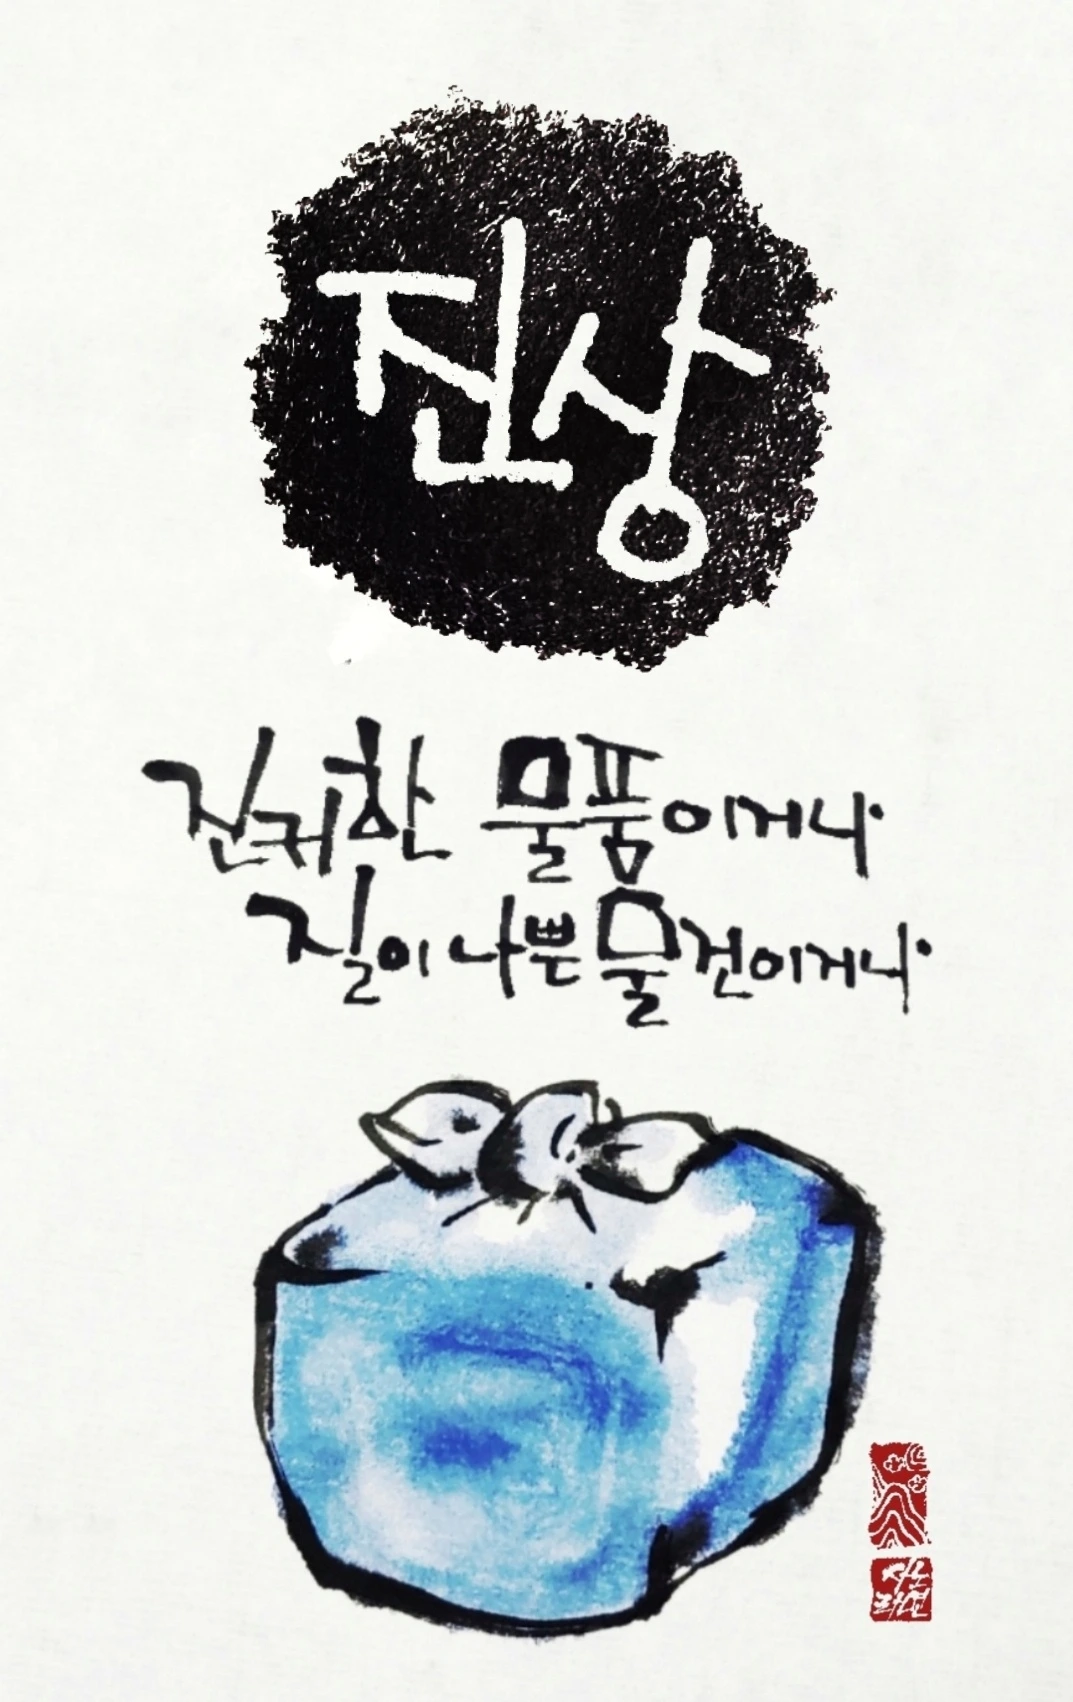 진상
진귀한 물품이거나
질이 나쁜 물건이거나